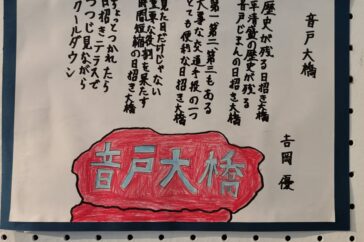 音戸大橋
吉岡 優
歴史が残る日招き大橋
平清盛の歴史が残る
音戸じまんの日招き大橋
第一第二第三もある
大事な交通手段の一つ
とても便利な日招き大橋
見た目だけじゃない
重要な役割を果たす
時間短縮の日招き大橋
ちょっとつかれたら
日招きテラスで
つつじ見ながら
クールダウン
音戸大橋